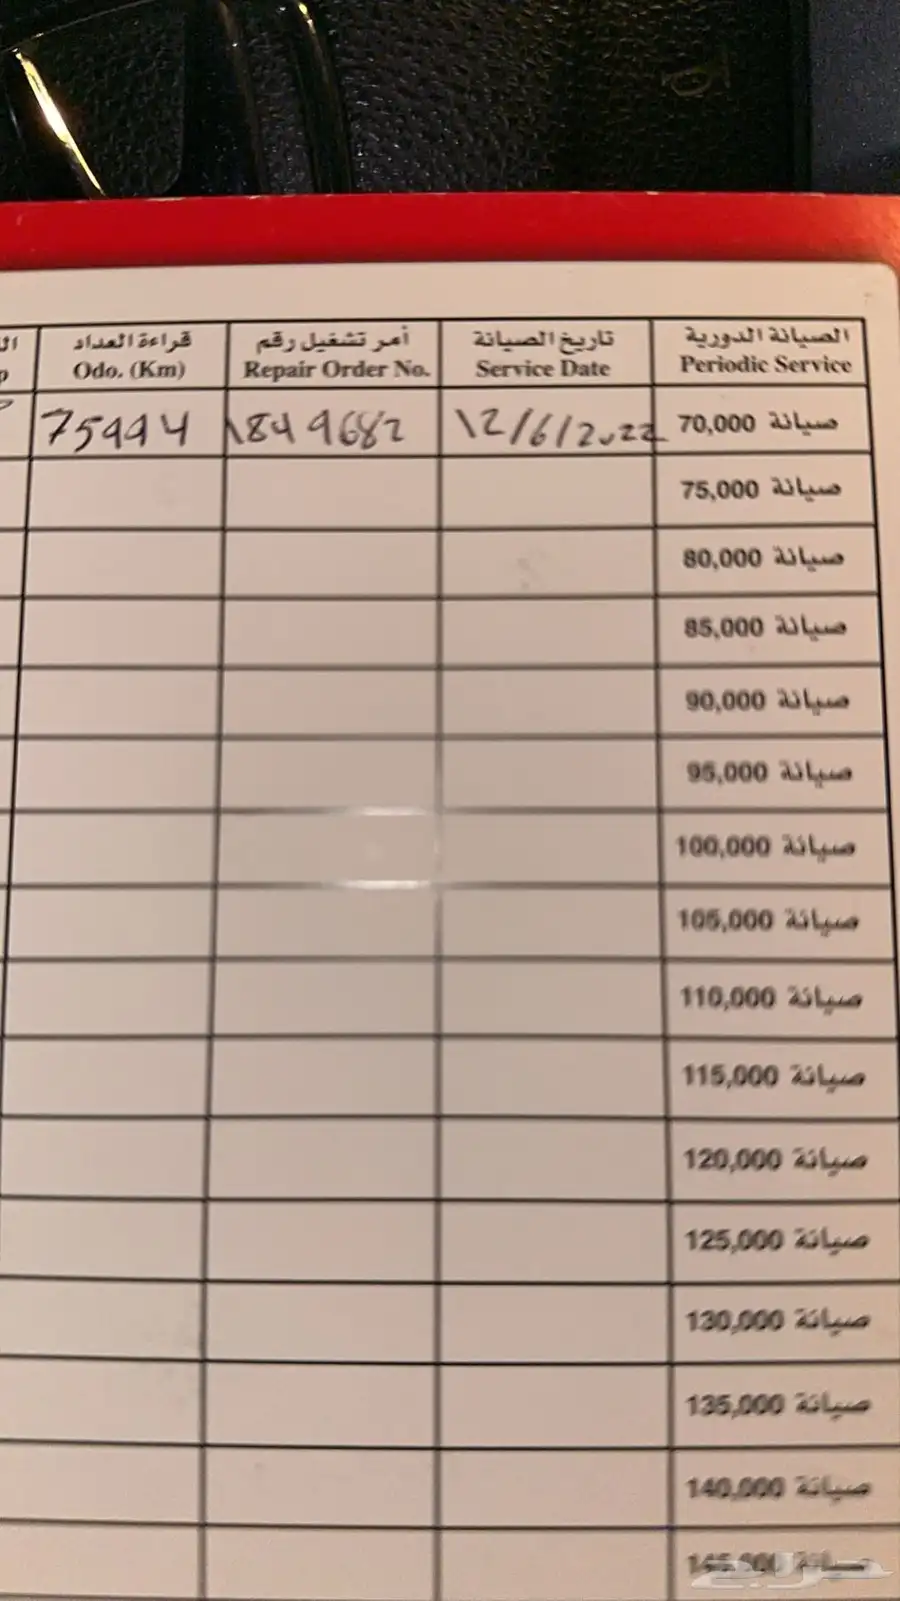 الصيانة الدورية تاريخ الصيانة أمر تشغيل رقم قراءة العداد
Periodic Service Service Date Repair Order No. Odo. (Km)
صيانة 70,000 12/6/2022 1849682 75994
صيانة 75,000
صيانة 80,000
صيانة 85,000
صيانة 90,000
صيانة 95,000
صيانة 100,000
صيانة 105,000
صيانة 110,000
صيانة 115,000
صيانة 120,000
صيانة 125,000
صيانة 130,000
صيانة 135,000
صيانة 140,000
صيانة 145,000
حراج